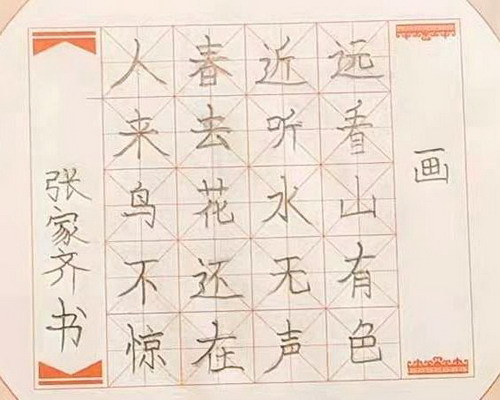 画
远看山有色
近听水无声
春去花还在
人来鸟不惊
张家齐书